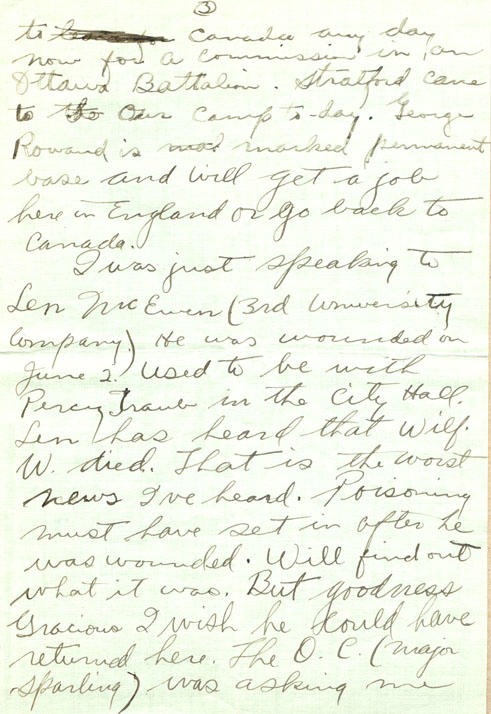 3
to Canada any day
now for a commission in an
Ottawa Battalion. Stratford came
to Our Camp to-day. George
Rowand is marked permanent
base and will get a job
here in England or go back to
Canada.
I was just speaking to
Len McEwen (3rd University
Company.) He was wounded on
June 2. Used to be with
Percy Traub in the City Hall.
Len has heard that Wilf.
W. died. That is the worst
news I've heard. Poisoning
must have set in after he
was wounded. Will find out
what it was. But goodness
Gracious I wish he could have
returned here. The O. C. (Major
Sparling) was asking me